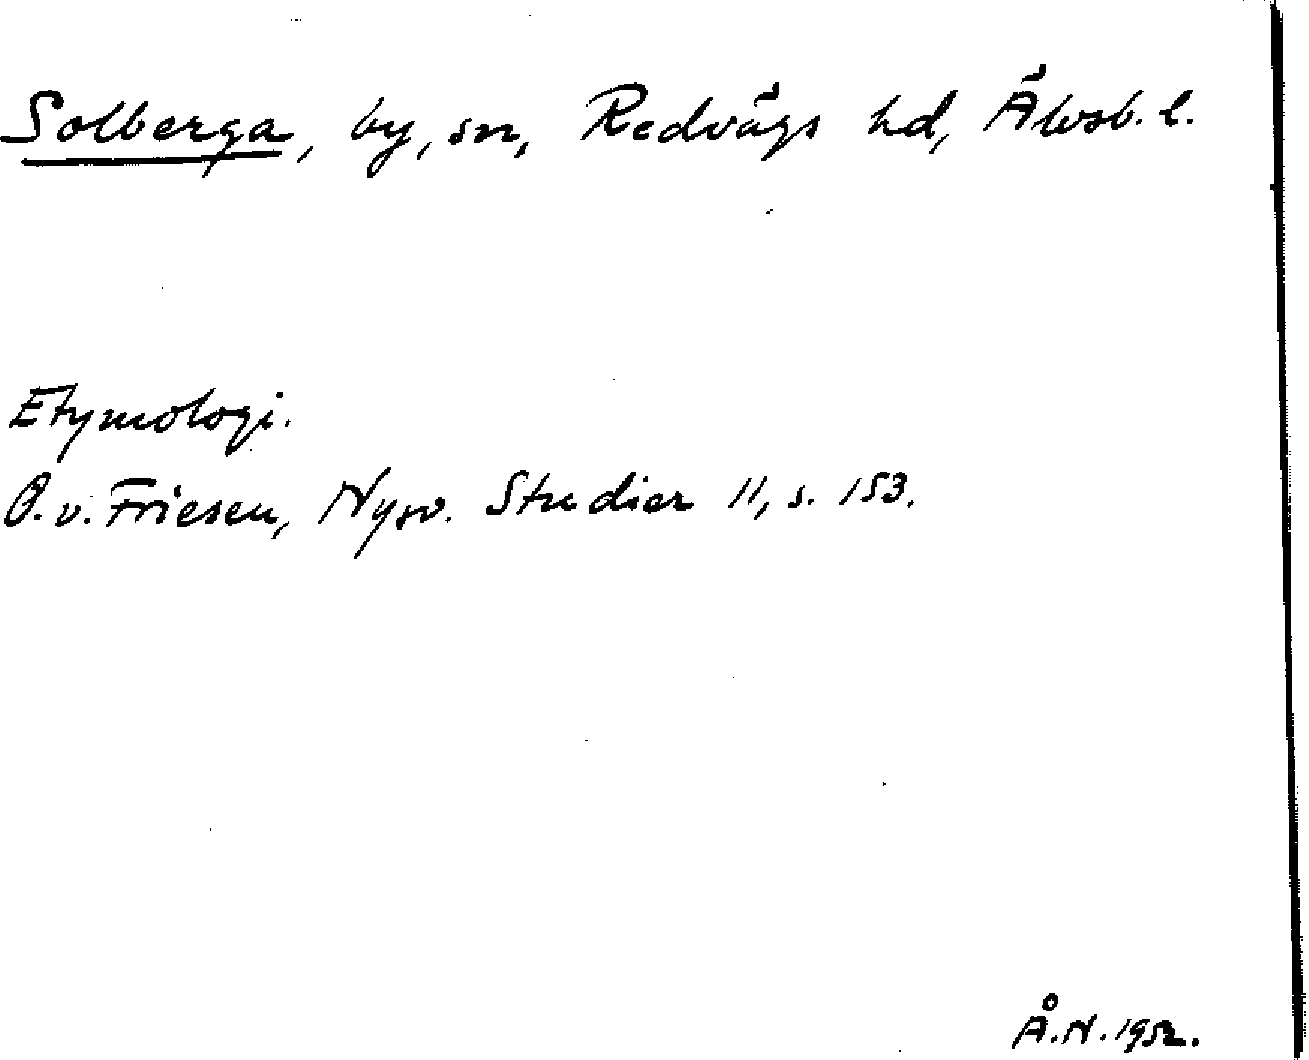 Solberga, by, sn, Redvägs hd, Älvsb. l.
Etymologi.
O. v. Friesen, Nysv. Studier 11, s. 153.
Å. N. 1952.